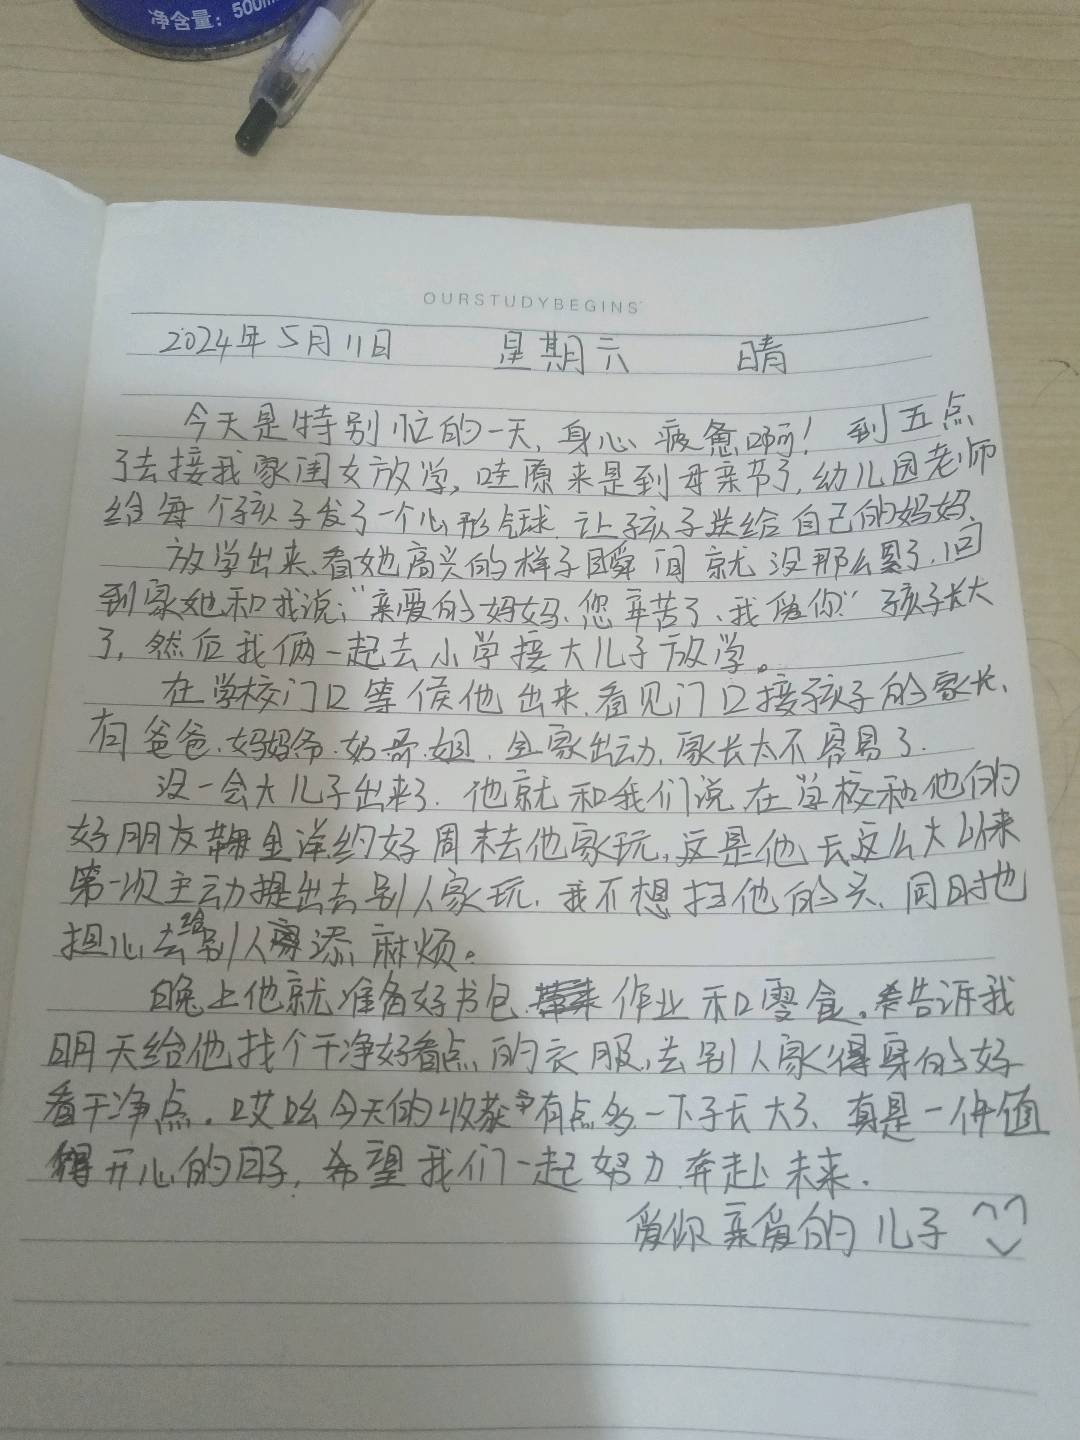 净含量：500m
OURSTUDYBEGINS
2024年5月11日 星期六 晴
今天是特别忙的一天，身心疲惫啊！到五点
了去接我家闺女放学，哇原来是到母亲节了，幼儿园老师
给每个孩子发了一个心形气球，让孩子送给自己的妈妈、
放学出来、看她高兴的样子瞬间就没那么累了，回
到家她和我说；“亲爱的妈妈、您辛苦了、我爱你”孩子长大
了，然后我俩一起去小学接大儿子放学。
在学校门口等候他出来，看见门口接孩子的家长、
有爸爸、妈妈爷、奶哥、姐、全家出动、家长太不容易了．
没一会大儿子出来了．他就和我们说在学校和他的
好朋友金洋约好周末去他家玩，这是他长这么大以来
第一次主动提出去别人家玩，我不想扫他的兴、同时也
担心去给别人家添麻烦。
晚上他就准备好书包 作业和零食。告诉我
明天给他找个干净好看点的衣服，去别人家得穿的好
看干净点．哎呦今天的收获有点多一下子长大了、真是一件值
得开心的日子，希望我们一起努力奔赴未来．
爱你亲爱的儿子